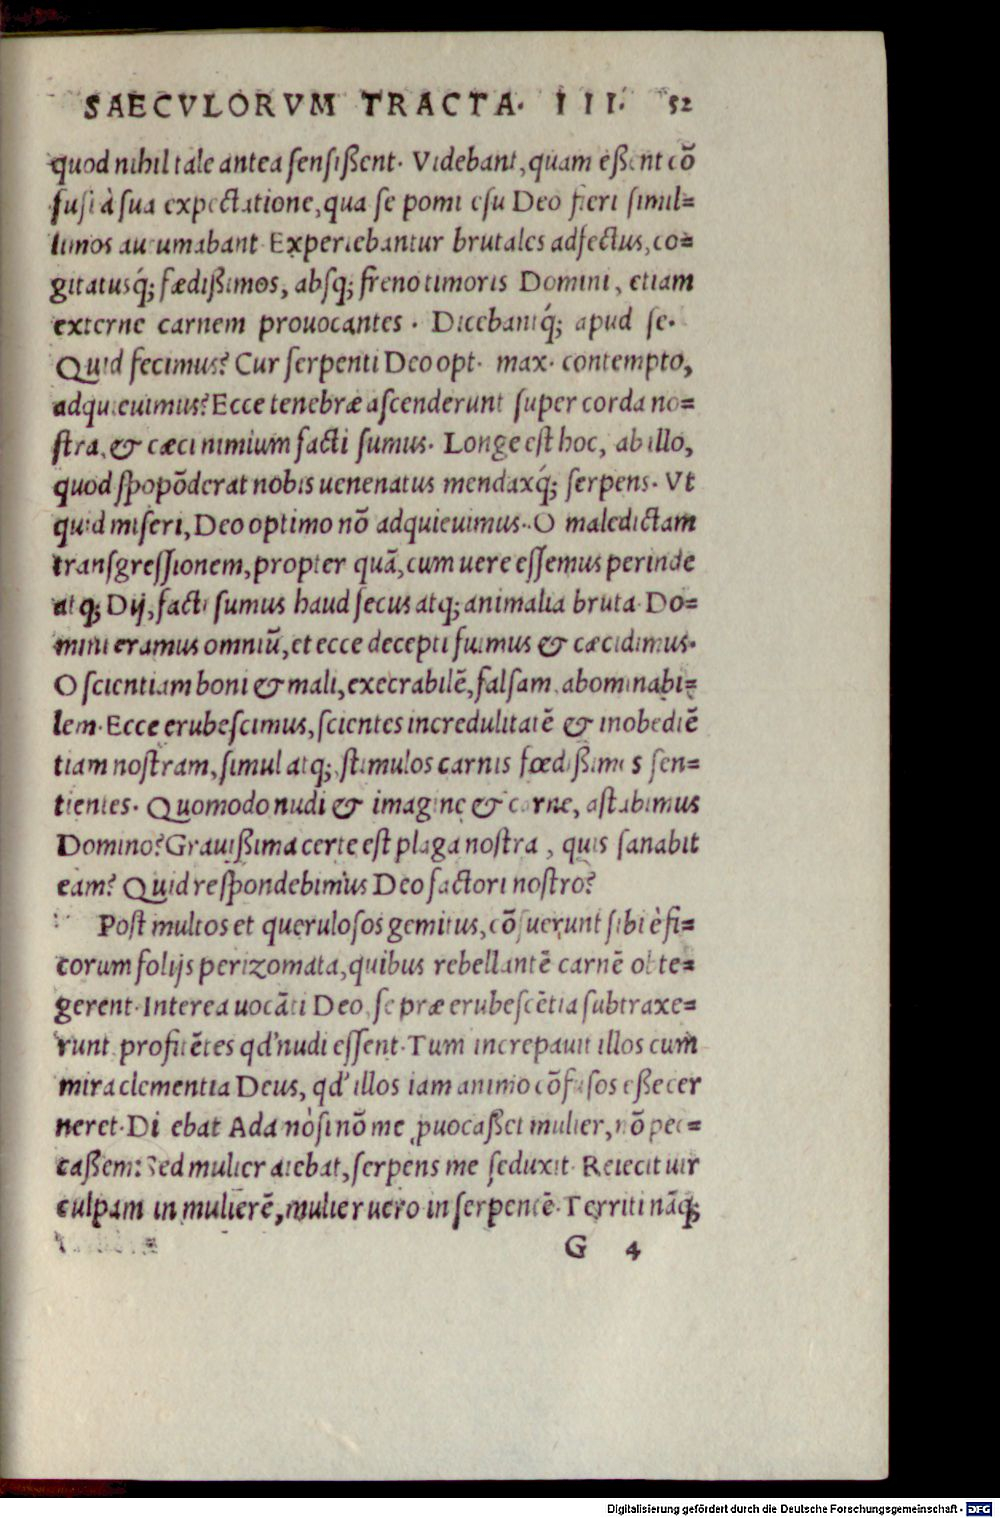 SAECVLORVM TRACTA. III. 52
quod nihil tale antea sensißent. Videbant, quam eßent cō
fusi à sua expectatione, qua se pomi esu Deo fieri simil=
limos autumabant. Experiebantur brutales adfectus, co=
gitatusq́; fædißimos, absq; freno timoris Domini, etiam
externe carnem prouocantes. Dicebantq́; apud se.
Quid fecimus? Cur serpenti Deo opt. max. contempto,
adquieuimus? Ecce tenebræ ascenderunt super corda no=
stra, & cæci nimium facti sumus. Longe est hoc, ab illo,
quod spopōderat nobis uenenatus mendaxq́; serpens. Vt
quid miseri, Deo optimo nō adquieuimus. O maledictam
transgressionem, propter quā, cum uere essemus perinde
atq; Dij, facti sumus haud secus atq; animalia bruta. Do=
mini eramus omniū, et ecce decepti fuimus & cæcidimus.
O scientiam boni & mali, execrabilē, falsam, abominabi=
lem. Ecce erubescimus, scientes incredulitatē & inobediē
tiam nostram, simul atq; stimulos carnis fœdißimos sen=
tientes. Quomodo nudi & imagine & carne, astabimus
Domino? Grauißima certe est plaga nostra, quis sanabit
eam? Quid respondebimus Deo factori nostro?
Post multos et querulosos gemitus, cōsuerunt sibi è fi=
corum folijs perizomata, quibus rebellantē carnē obte=
gerent. Interea uocāti Deo, se præ erubescētia subtraxe=
runt profitētes qd' nudi essent. Tum increpauit illos cum
mira clementia Deus, qd' illos iam animo cōfusos eße cer
neret. Dicebat Ada nòsi nō me ꝓuocaßet mulier, nō pec=
caßem: Sed mulier aiebat, serpens me seduxit. Reiecit uir
culpam in mulierē, mulier uero in serpentē. Territi nāq́;
G 4
Digitalisierung gefördert durch die Deutsche Forschungsgemeinschaft - DFG